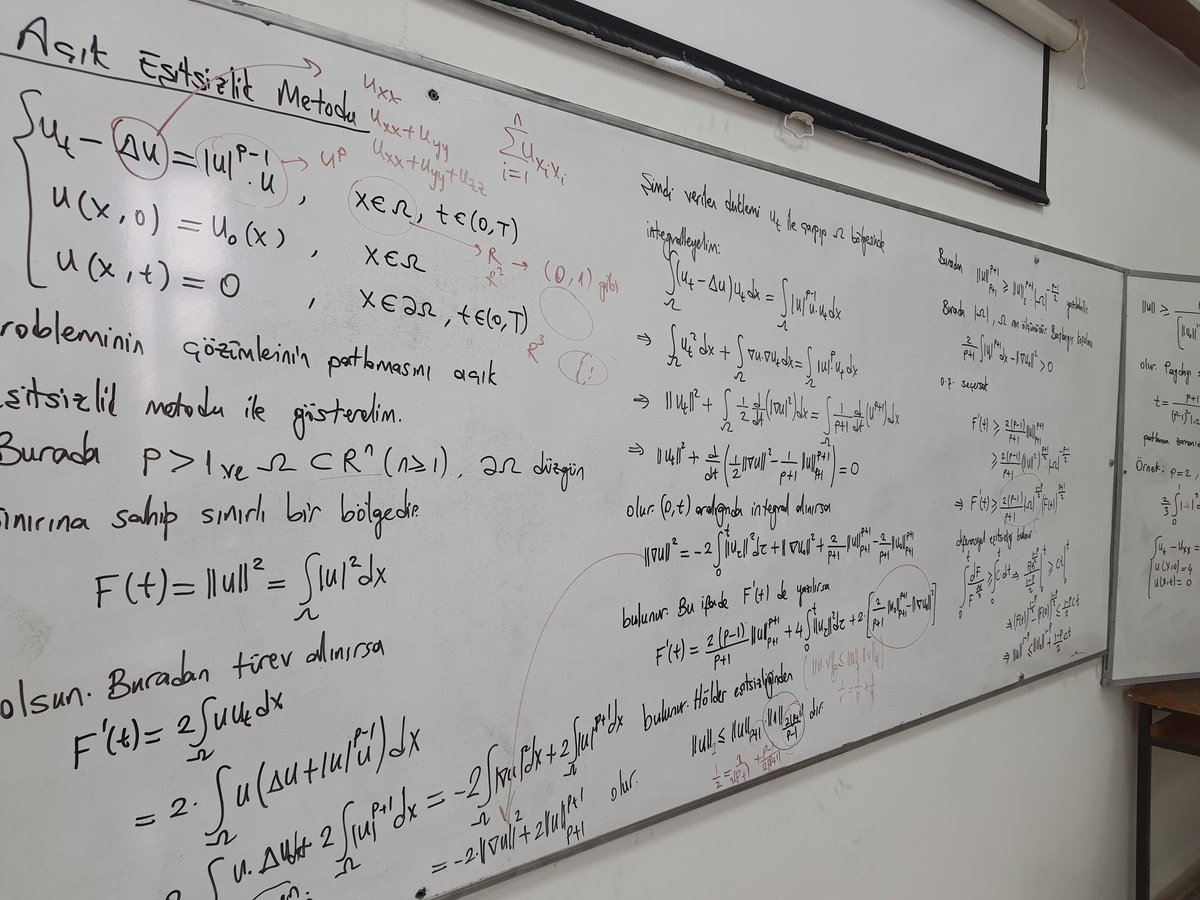 Açık Eşitsizlik Metodu
u_t − Δu = |u|^{p-1}.u , x∈Ω, t∈(0,T)
u(x,0) = u₀(x) , x∈Ω
u(x,t) = 0 , x∈∂Ω, t∈(0,T)
u^p
u_xx
u_xx+u_yy
u_xx+u_yy+u_zz
∑_{i=1}^{n} u_{x_i x_i}
R → (0,1) gibi
R²
R³
robleminin çözümlerinin patlamasını açık
şitsizlik metodu ile gösterelim.
Burada p>1 ve Ω⊂Rⁿ (n≥1), ∂Ω düzgün
sınırına sahip sınırlı bir bölgedir.
F(t) = ||u||² = ∫_Ω |u|² dx
olsun. Buradan türev alınırsa
F'(t) = 2∫_Ω u u_t dx
= 2.∫_Ω u(Δu+|u|^{p-1}u)dx
∫_Ω u.Δu dx + 2∫_Ω |u|^{p+1} dx = -2∫_Ω |∇u|² dx + 2∫_Ω |u|^{p+1} dx
= -2.||∇u||² + 2||u||_{p+1}^{p+1} olur.
Şimdi verilen denklemi u_t ile çarpıp Ω bölgesinde
integralleyelim:
∫_Ω (u_t − Δu)u_t dx = ∫_Ω |u|^{p-1}u.u_t dx
⇒ ∫_Ω u_t² dx + ∫_Ω ∇u.∇u_t dx = ∫_Ω |u|^p u_t dx
⇒ ||u_t||² + ∫_Ω 1/2 d/dt (|∇u|²)dx = ∫_Ω 1/(p+1) d/dt (u^{p+1})dx
⇒ ||u_t||² + d/dt (1/2 ||∇u||² − 1/(p+1) ||u||_{p+1}^{p+1}) = 0
olur. (0,t) aralığında integral alınırsa
||∇u||² = -2∫_0^t ||u_τ||² dτ + ||∇u₀||² + 2/(p+1) ||u||_{p+1}^{p+1} − 2/(p+1) ||u₀||_{p+1}^{p+1}
bulunur. Bu ifade F'(t) de yazılırsa
F'(t) = 2(p-1)/(p+1) ||u||_{p+1}^{p+1} + 4∫_0^t ||u_τ||² dτ + 2.[2/(p+1) ||u₀||_{p+1}^{p+1} − ||∇u₀||²]
bulunur. Hölder eşitsizliğinden
||u||₂ ≤ ||u||_{p+1} . ||1||_{2(p+1)/(p-1)} dir.
1/2 = 1/(p+1) + (p-1)/(2(p+1))
Buradan ||u||_{p+1}^{p+1} ≥ ||u||_2^{p+1}.|Ω|^{-(p-1)/2} yazılabilir.
Burada |Ω|, Ω nın ölçümüdür. Başlangıç
2/(p+1) ∫|u₀|^{p+1} dx − ||∇u₀||² > 0
o.ş. seçersek
F'(t) ≥ 2(p-1)/(p+1) ||u||_{p+1}^{p+1}
≥ 2(p-1)/(p+1) (||u||²)^{(p+1)/2} |Ω|^{-(p-1)/2}
⇒ F'(t) ≥ 2(p-1)/(p+1) |Ω|^{(1-p)/2} (F(t))^{(p+1)/2}
diferansiyel eşitsizliği bulunur.
||u|| ≥
olur.
t =
patlama zamanı
Örnek; p=2,
u_t − u_xx =
u(x,0) = 4
u(x,t) = 0